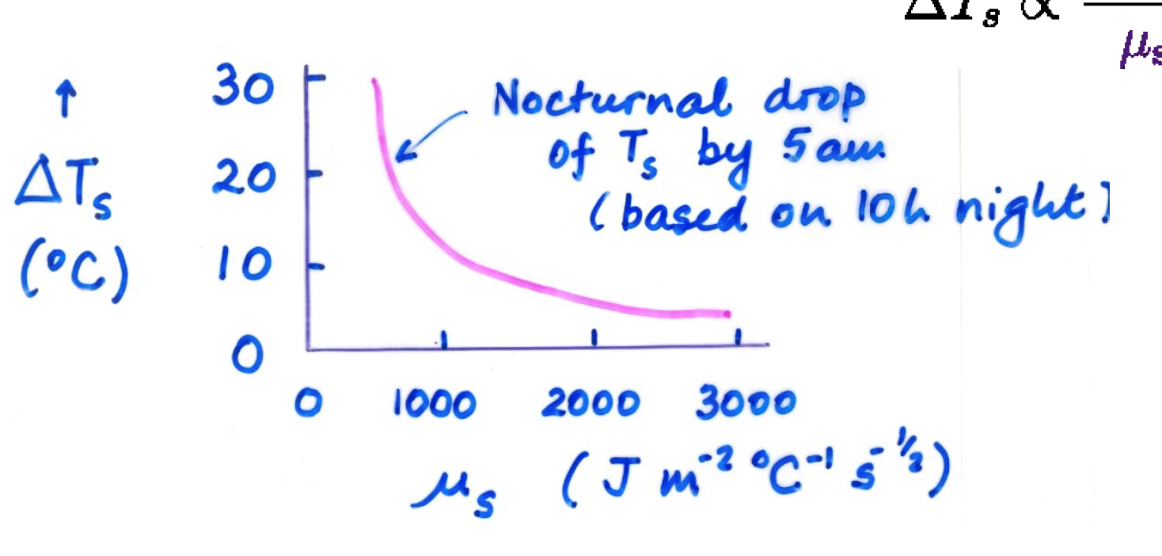 ΔT_s ∝
μ_s
↑
ΔT_s
(°C)
30
20
10
0
Nocturnal drop
of T_s by 5am
(based on 10h night)
0 1000 2000 3000
μ_s (J m⁻² °C⁻¹ s⁻¹/²)